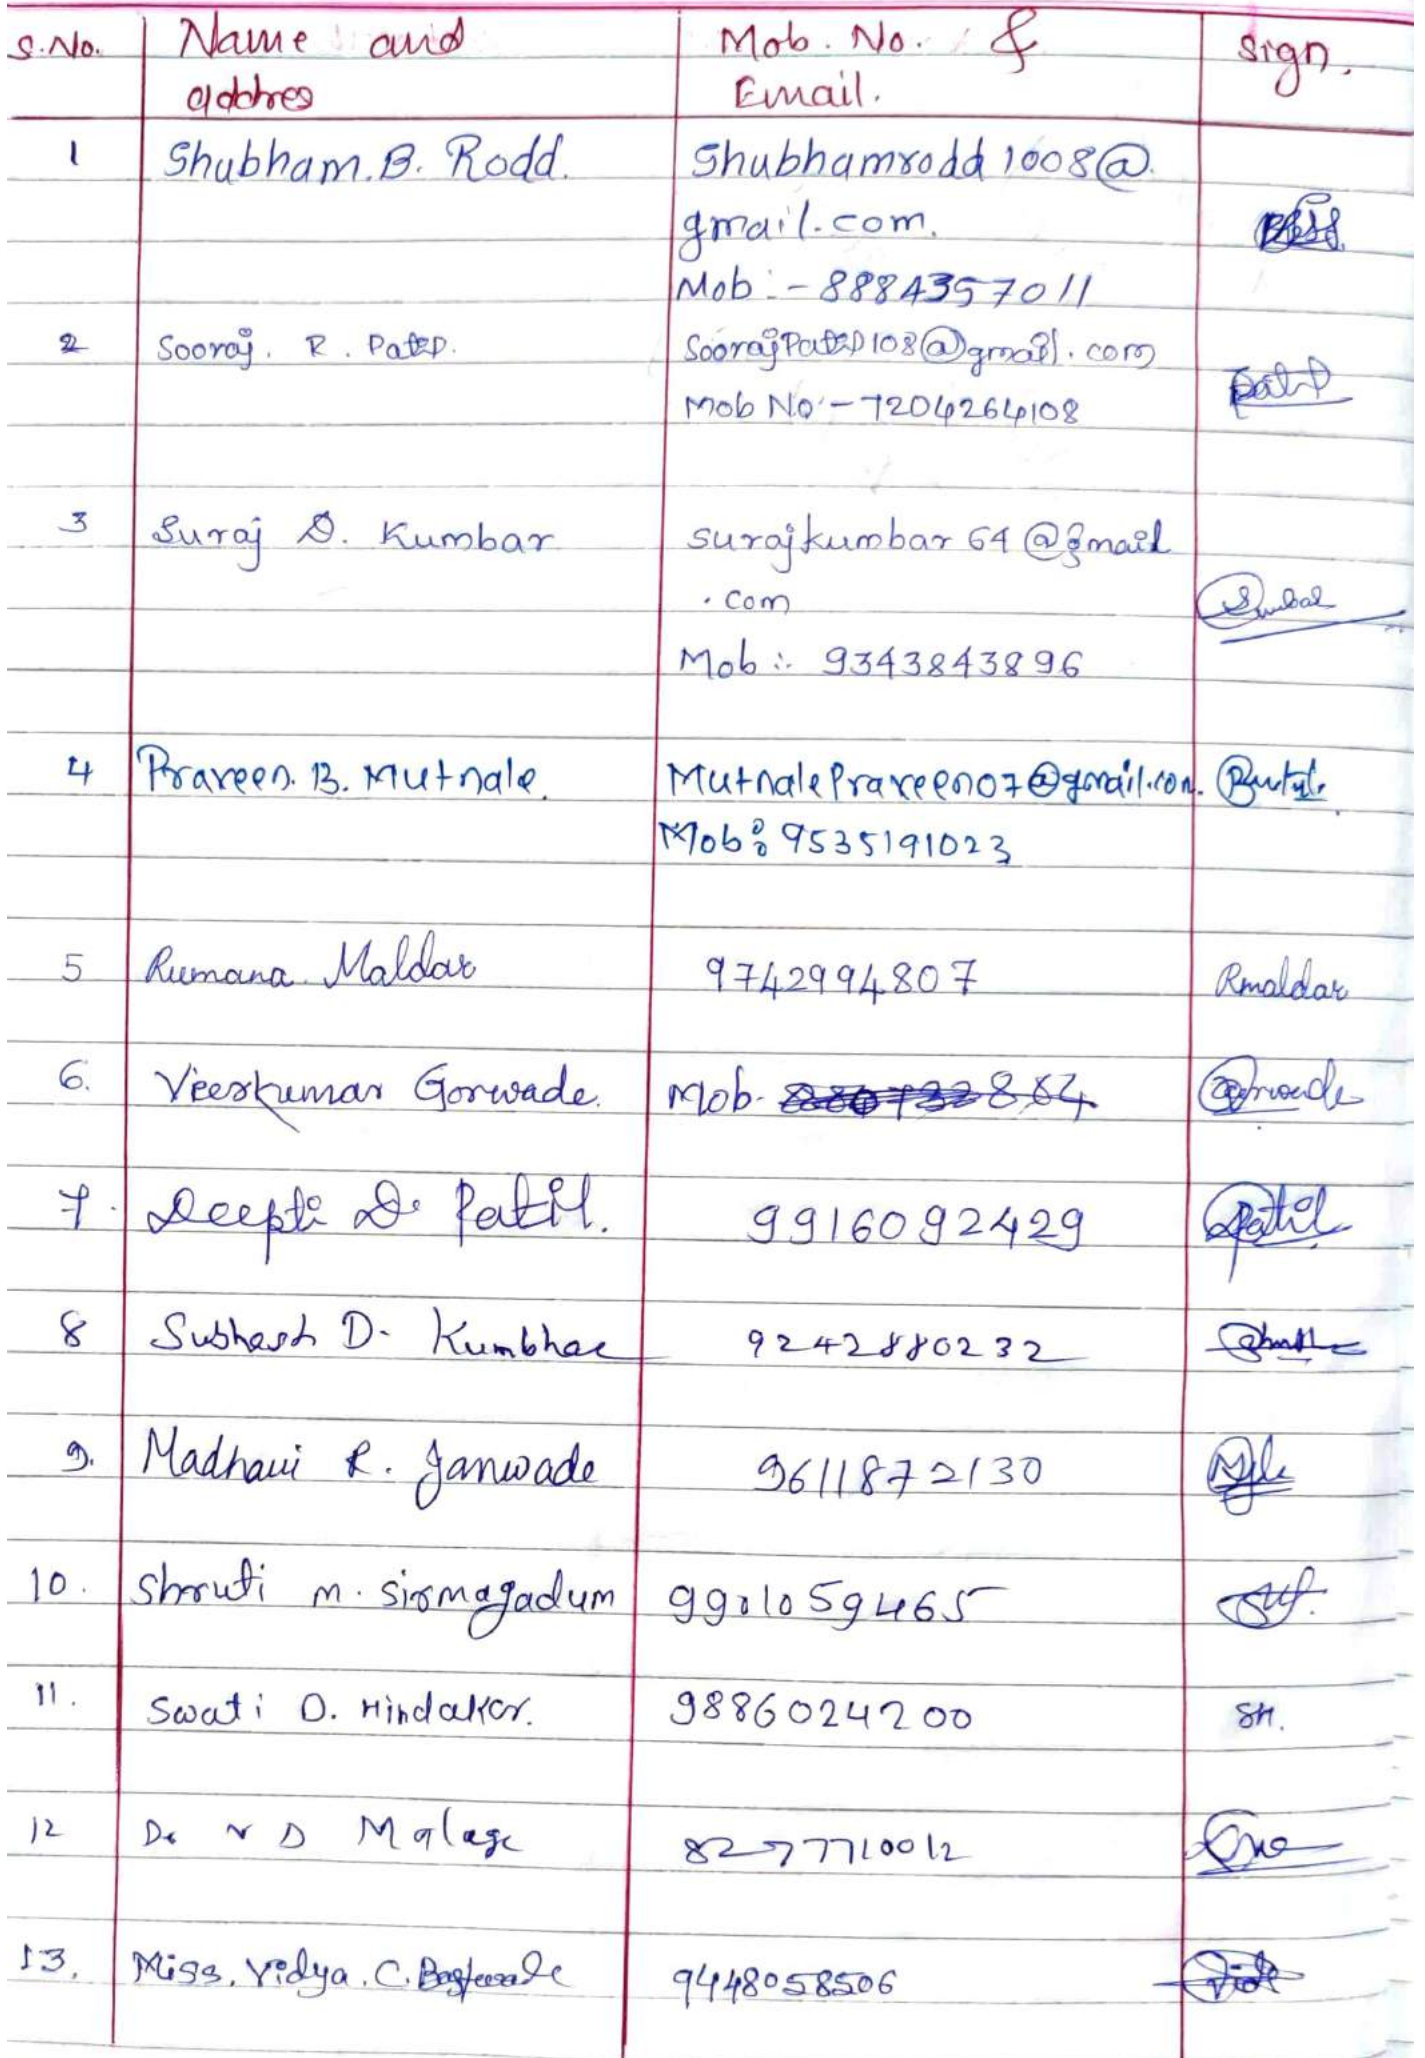 S.No. Name and Mob. No. & Sign.
addres Email.
1 Shubham.B. Rodd. Shubhamrodd1008@
gmail.com.
Mob :- 8884357011
2 Sooraj. R. Patil. SoorajPatil108@gmail.com
Patil
Mob No :- 7204264108
3 Suraj D. Kumbar surajkumbar64@gmail
.com
Mob :- 9343843896
4 Praveen. B. Mutnale. MutnalePraveen07@gmail.com.
Mob: 9535191023
5 Rumana Maldar 9742994807 Rmaldar
6. Veerkumar Gorwade. Mob.
7. Deepti D. Patil. 9916092429 Patil
8 Subhash D. Kumbhar 9242880232
9. Madhavi R. Janwade 9611872130
10. Shruti m. sirmagadum 9901059465
11. Swati D. Hindalkar. 9886024200 SH.
12 Dr N D Malage 8277710012
13. Miss. Vidya. C. 9448058506